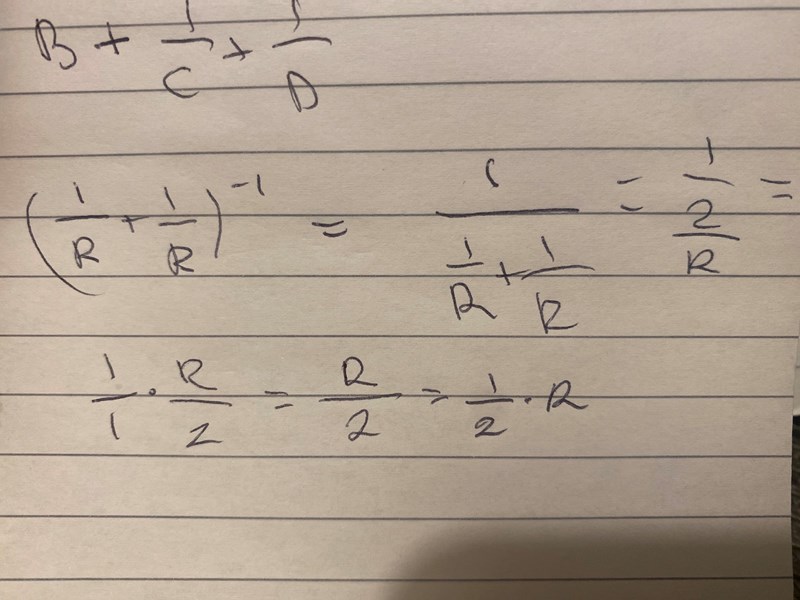 B + 1/C + 1/D
(1/R + 1/R)^-1 = 1/(1/R + 1/R) = 1/(2/R) =
1/1 · R/2 = R/2 = 1/2 · R